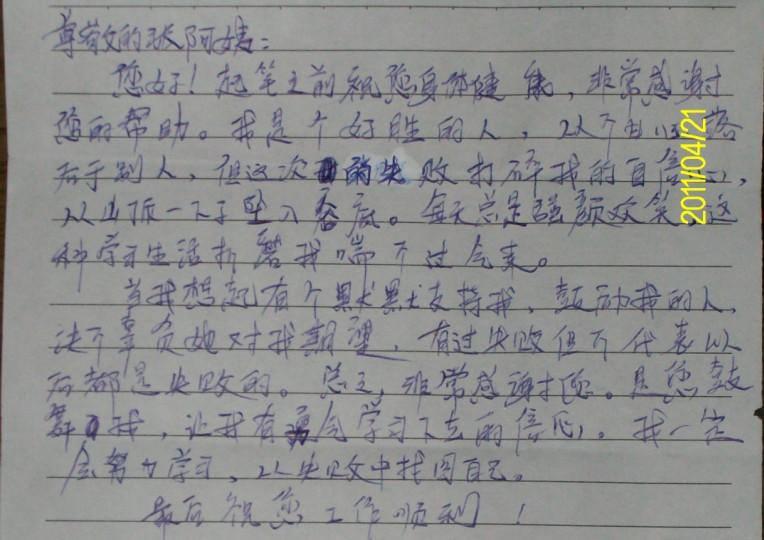 尊敬的张阿姨：
您好！起笔之前祝您身体健康，非常感谢
您的帮助。我是个好胜的人，从不甘心落
后于别人，但这次的失败打碎我的自信心，
从山顶一下子坠入谷底。每天总是强颜欢笑，这
种学习生活折磨我喘不过气来。
当我想起有个默默支持我、鼓励我的人，
决不辜负她对我期望，有过失败但不代表以
后都是失败的。总之，非常感谢您。是您鼓
舞了我，让我有勇气学习下去的信心。我一定
会努力学习，从失败中找回自己。
最后祝您工作顺利！
2011/04/21